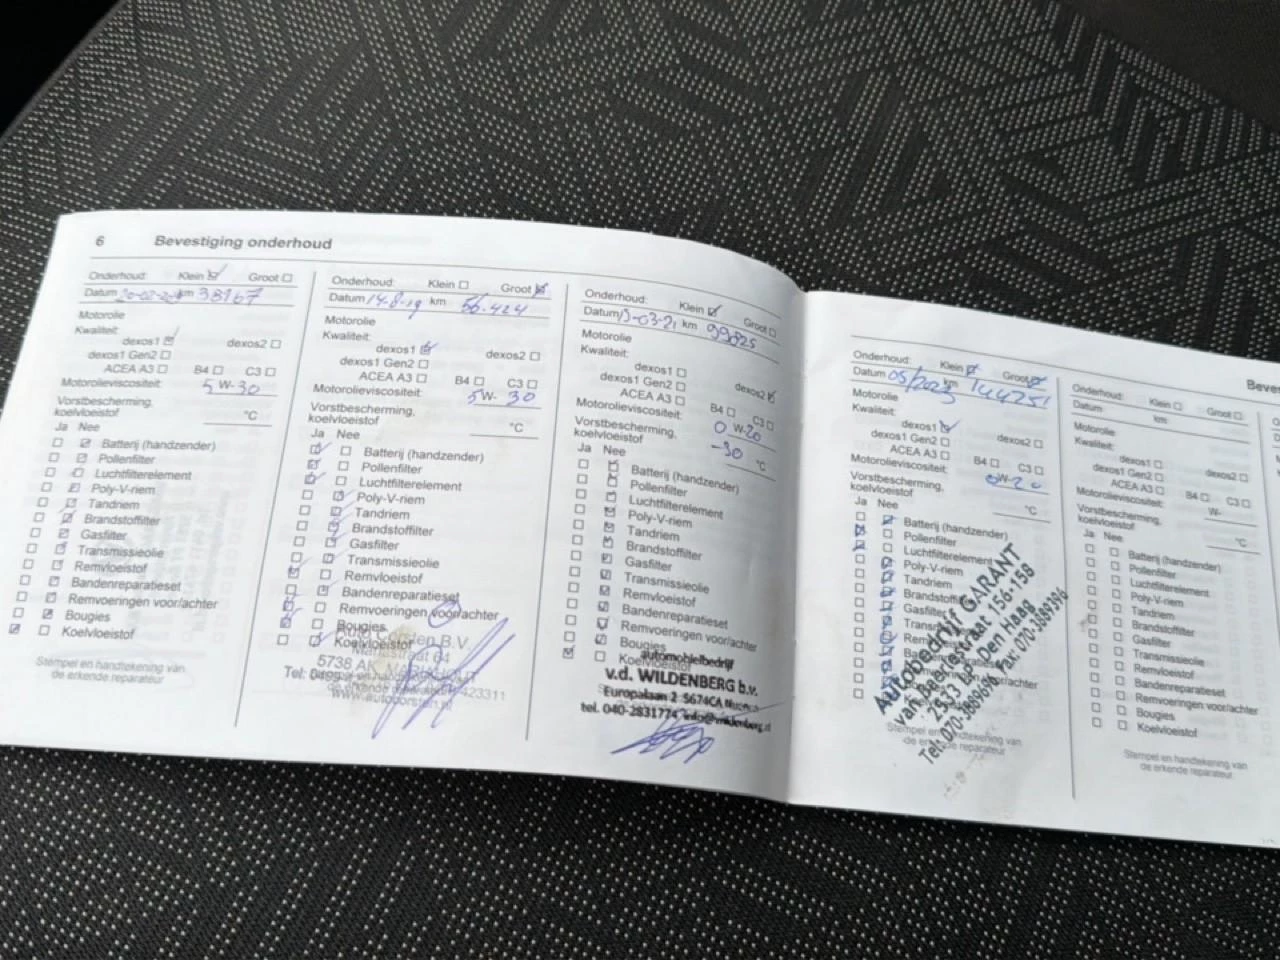 6 Bevestiging onderhoud
Onderhoud: Klein Groot
Datum 20-02- km 38167
Motorolie
Kwaliteit:
dexos1 dexos2
dexos1 Gen2
ACEA A3 B4 C3
Motorolieviscositeit:
5 W- 30
Vorstbescherming,
koelvloeistof °C
Ja Nee
Batterij (handzender)
Pollenfilter
Luchtfilterelement
Poly-V-riem
Tandriem
Brandstoffilter
Gasfilter
Transmissieolie
Remvloeistof
Bandenreparatieset
Remvoeringen voor/achter
Bougies
Koelvloeistof
Stempel en handtekening van
de erkende reparateur
Onderhoud: Klein Groot
Datum 14-8-19 km 56.424
Motorolie
Kwaliteit:
dexos1 dexos2
dexos1 Gen2
ACEA A3 B4 C3
Motorolieviscositeit:
5 W- 30
Vorstbescherming,
koelvloeistof °C
Ja Nee
Batterij (handzender)
Pollenfilter
Luchtfilterelement
Poly-V-riem
Tandriem
Brandstoffilter
Gasfilter
Transmissieolie
Remvloeistof
Bandenreparatieset
Remvoeringen voor/achter
Bougies
Koelvloeistof
Auto Corsten B.V.
5738 AK
Tel: 0499
423311
www.autocorsten.nl
Onderhoud: Klein Groot
Datum 15-03-21 km 99825
Motorolie
Kwaliteit:
dexos1 dexos2
dexos1 Gen2
ACEA A3 B4 C3
Motorolieviscositeit:
0 W-20
Vorstbescherming,
koelvloeistof -30 °C
Ja Nee
Batterij (handzender)
Pollenfilter
Luchtfilterelement
Poly-V-riem
Tandriem
Brandstoffilter
Gasfilter
Transmissieolie
Remvloeistof
Bandenreparatieset
Remvoeringen voor/achter
Bougies
Koelvloeistof
automobielbedrijf
v.d. WILDENBERG b.v.
Europalaan 2 5674CA Nuenen
tel. 040-2831774 info@wildenberg.nl
Onderhoud: Klein Groot
Datum 05/2023 km 144251
Motorolie
Kwaliteit:
dexos1 dexos2
dexos1 Gen2
ACEA A3 B4 C3
Motorolieviscositeit:
0W-20
Vorstbescherming,
koelvloeistof °C
Ja Nee
Batterij (handzender)
Pollenfilter
Luchtfilterelement
Poly-V-riem
Tandriem
Brandstoffilter
Gasfilter
Autobedrijf GARANT
van Beerlestraat 156-158
2533 AP Den Haag
Tel: 070-3889696 Fax: 070-3889396
Stempel en handtekening van
de erkende reparateur
Onderhoud: Klein Groot
Datum km
Motorolie
Kwaliteit:
dexos1 dexos2
dexos1 Gen2
ACEA A3 B4 C3
Motorolieviscositeit:
W-
Vorstbescherming,
koelvloeistof °C
Ja Nee
Batterij (handzender)
Pollenfilter
Luchtfilterelement
Poly-V-riem
Tandriem
Brandstoffilter
Gasfilter
Transmissieolie
Remvloeistof
Bandenreparatieset
Remvoeringen voor/achter
Bougies
Koelvloeistof
Stempel en handtekening van
de erkende reparateur